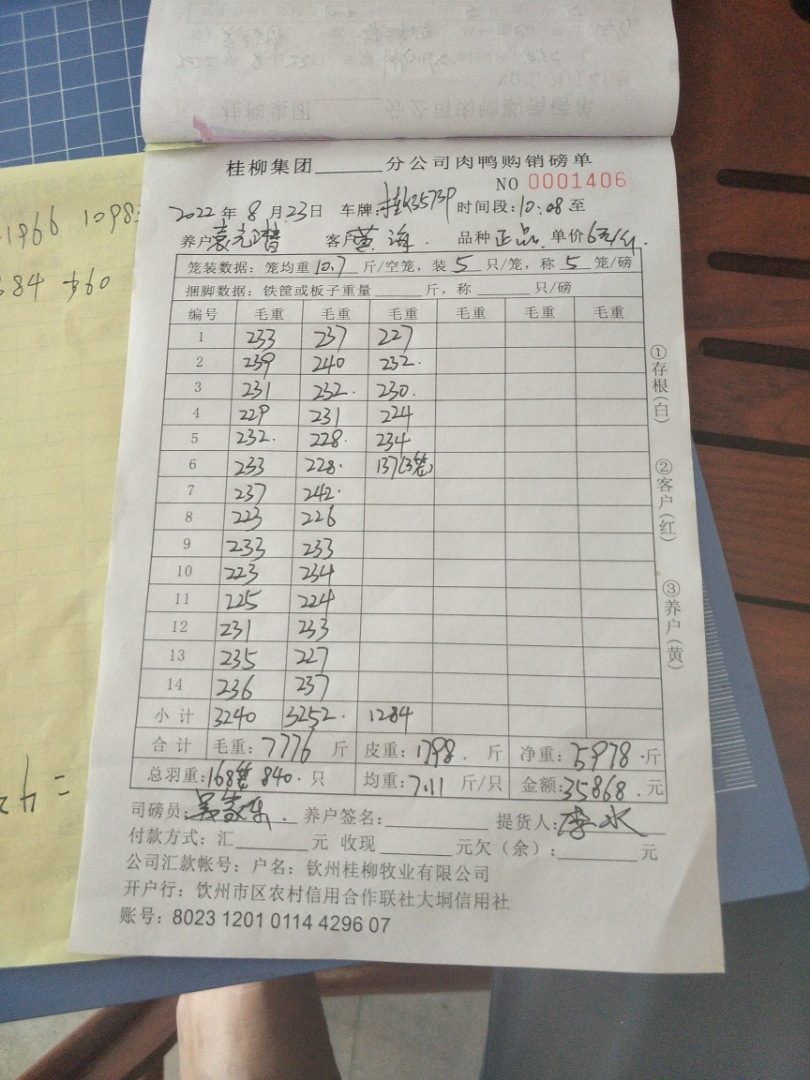 1966 1098
384 +360
= 42
桂柳集团______分公司肉鸭购销磅单
NO 0001406
2022年 8月23日 车牌:桂K3573P 时间段:10:08至
养户 客户 黄海. 品种 正品. 单价6元/斤.
笼装数据:笼均重 10.7 斤/空笼,装 5 只/笼,称 5 笼/磅
捆脚数据:铁筐或板子重量______斤,称______只/磅
编号 毛重 毛重 毛重 毛重 毛重 毛重
1 233 237 227
2 239 240 232.
3 231 232. 230.
4 229 231 224
5 232. 228. 234
6 233 228. 137(3笼)
7 237 242.
8 223 226
9 233 233
10 223 234
11 225 224
12 231 233
13 235 227
14 236 237
小计 3240 3252. 1284
合计 毛重:7776 斤 皮重:1798. 斤 净重:5978.斤
总羽重:168笼 840.只 均重:7.11 斤/只 金额:35868.元
司磅员: 养户签名:______ 提货人:李水
付款方式:汇______元 收现______元欠(余):______元
公司汇款帐号:户名:钦州桂柳牧业有限公司
开户行:钦州市区农村信用合作联社大垌信用社
账号:8023 1201 0114 4296 07
①存根(白)
②客户(红)
③养户(黄)